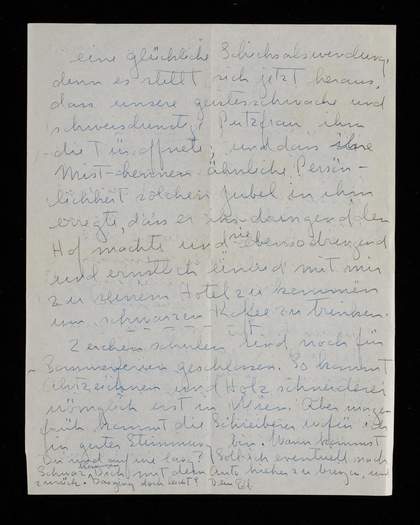 eine glückliche Schicksalswendung,
denn es stellt sich jetzt heraus,
dass unsere geistesschwache und
Putzfrau ihm
die Tür öffnete, und dass ihre
ähnliche Persön-
lichkeit solchen Jubel in ihm
erregte, dass er den
Hof machte und sie ebenso dringend
und ernstlich einlud mit mir
zu seinem Hotel zu kommen
um schwarzen Kaffee zu trinken.
Zeichenschulen sind noch für
Sommerferien geschlossen. So kommt
Aktzeichnen und Holzschneiderei
womöglich erst in Wien. Aber morgen
früh kommt die Schreiberei wofür ich
in guter Stimmung bin. Wann kommst
Du und auf wie lang? Soll ich eventuell nach
Schwaz, Dich mit dem Auto hieher zu bringen, und
zurück. Das ging doch leicht? Dein